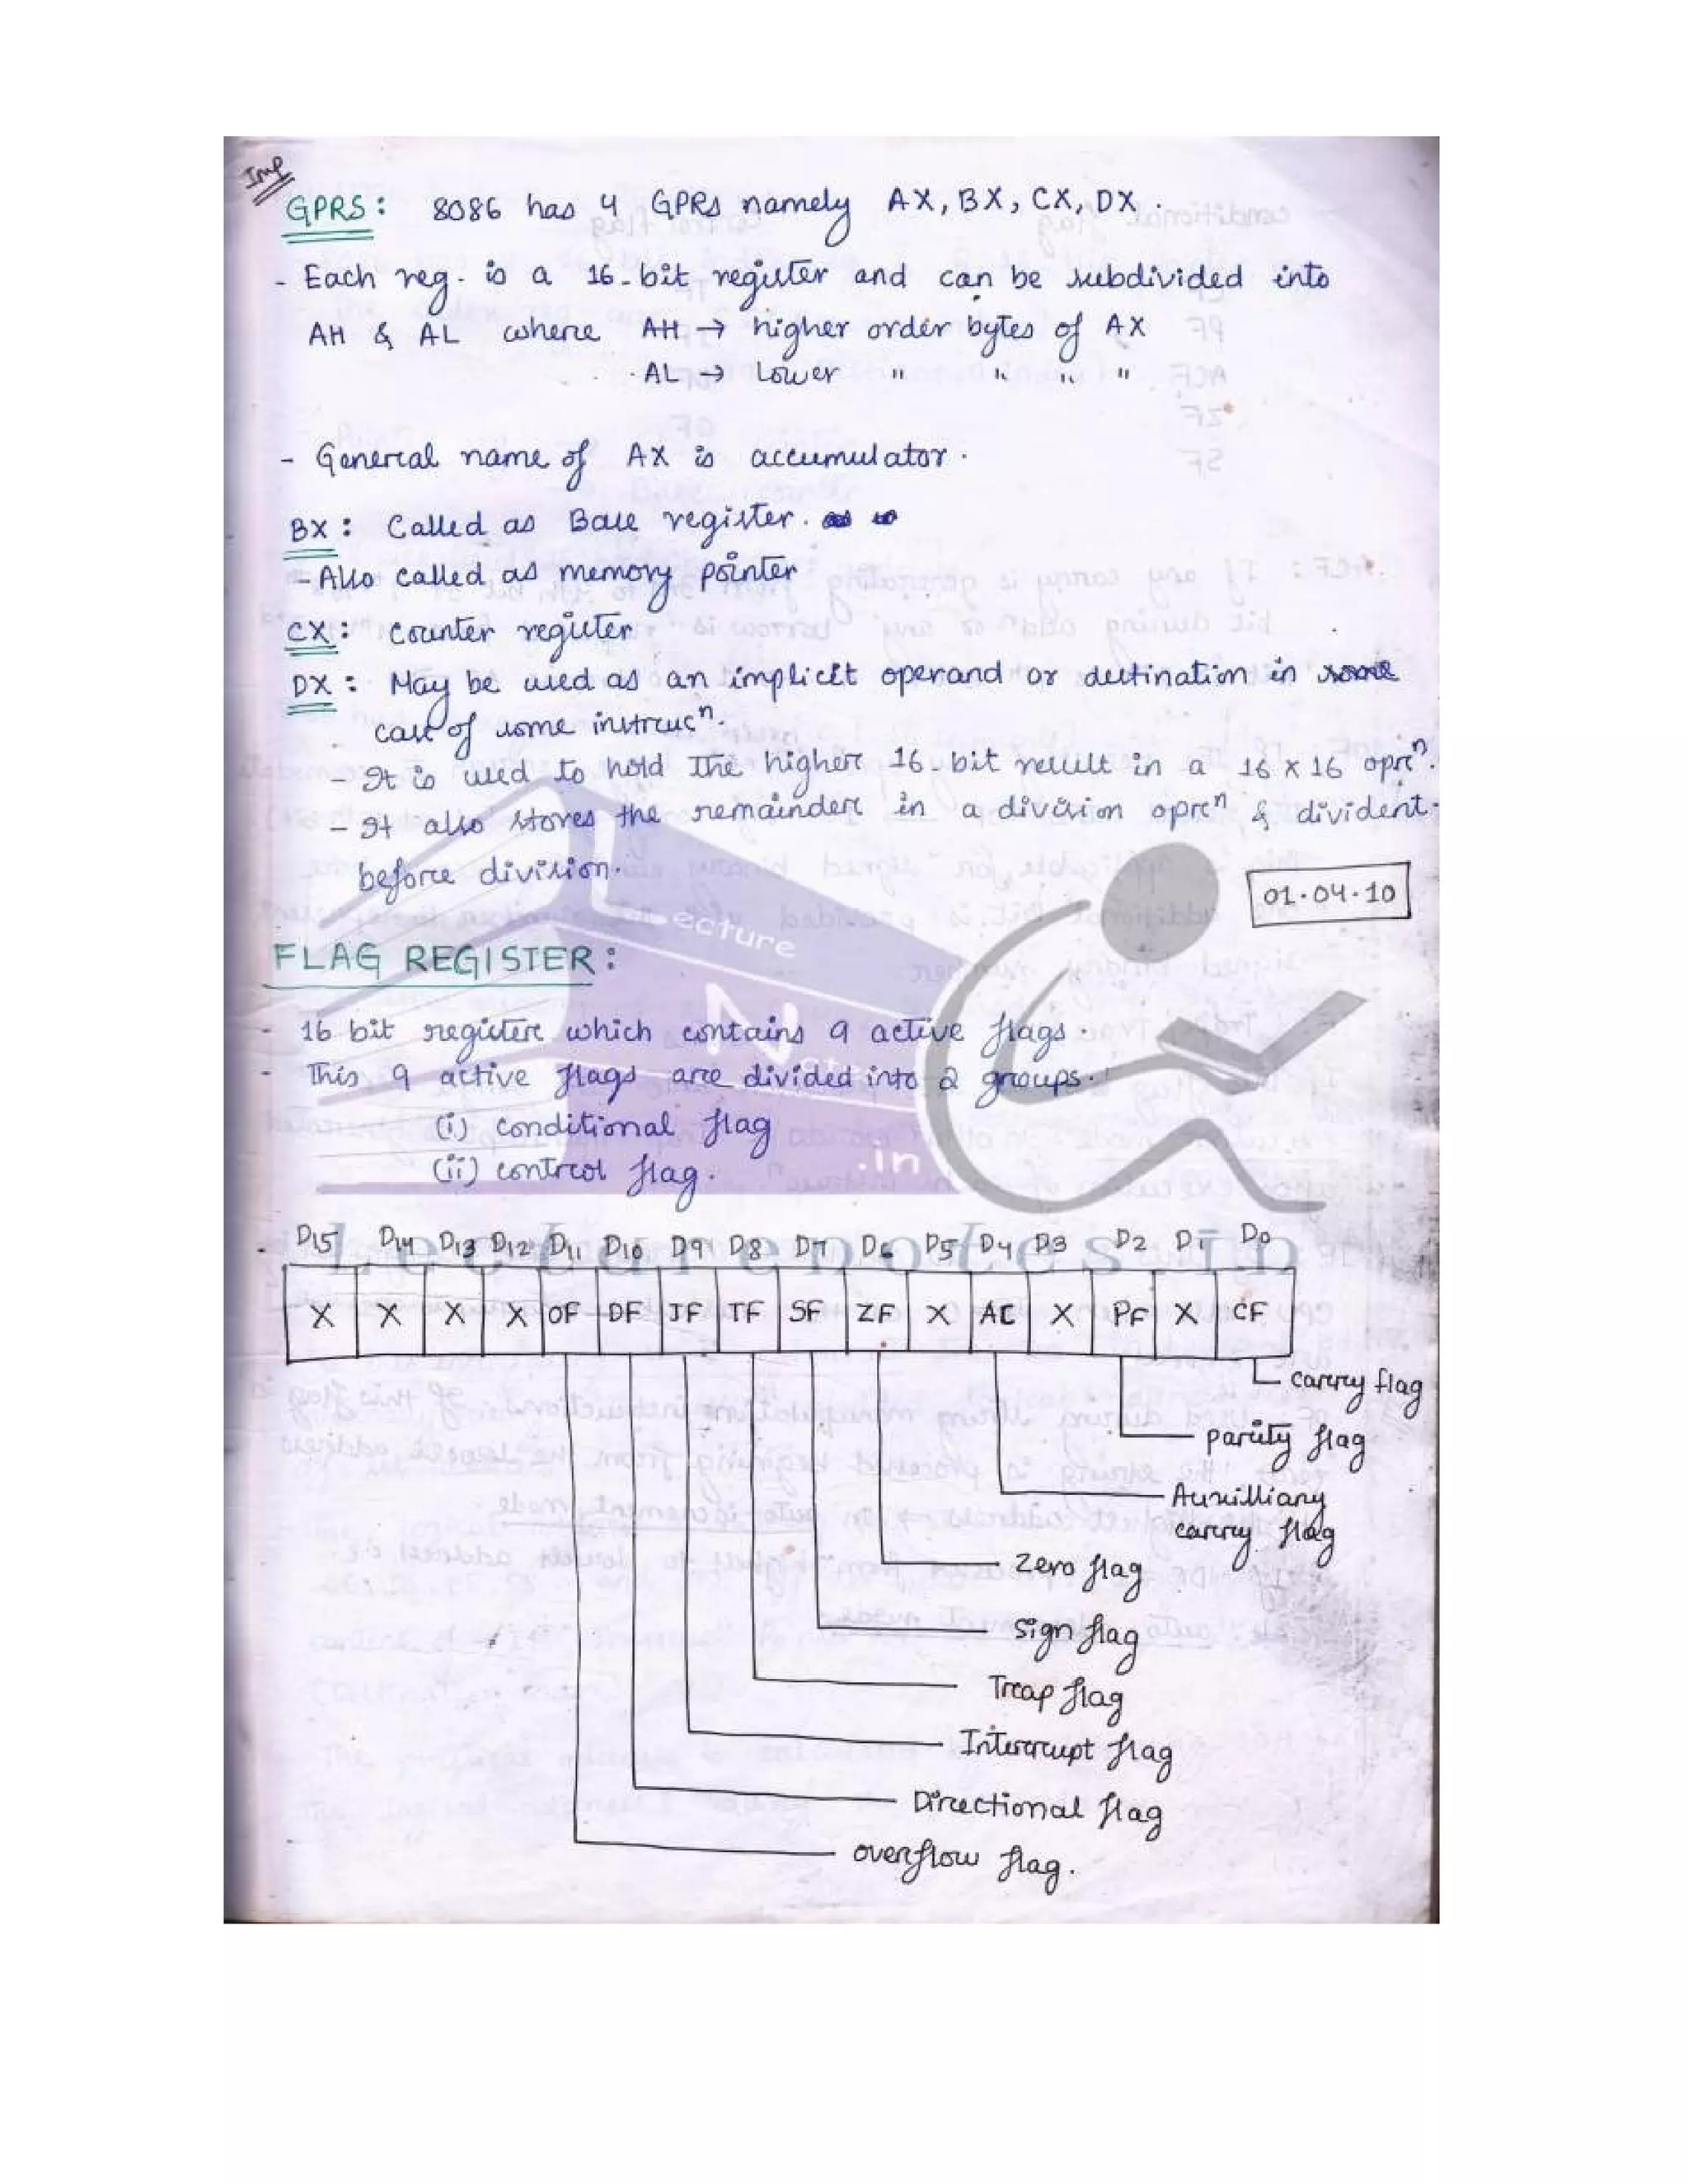 Imp
GPRS : 8086 has 4 GPRs namely AX, BX, CX, DX .
- Each reg. is a 16-bit register and can be subdivided into
AH & AL where AH → higher order bytes of AX
AL → Lower " " " "
- General name of AX is accumulator .
BX : Called as Base register .
- Also called as memory pointer
CX : Counter register
DX : May be used as an implicit operand or destination in
case of some instrucⁿ.
- It is used to hold the higher 16-bit result in a 16 x 16 oprⁿ.
- It also stores the remainder in a division oprⁿ & divident
before division.
01.04.10
FLAG REGISTER :
- 16 bit register which contains 9 active flags .
- This 9 active flags are divided into 2 groups.
(i) conditional flag
(ii) control flag .
Lecture
Notes
.in
Lecturenotes.in
D15 D14 D13 D12 D11 D10 D9 D8 D7 D6 D5 D4 D3 D2 D1 D0
X X X X OF DF IF TF SF ZF X AC X PF X CF
carry flag
parity flag
Auxilliary
carry flag
Zero flag
Sign flag
Trap flag
Interrupt flag
Directional flag
overflow flag .